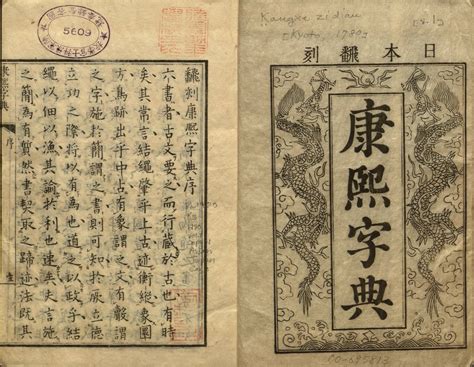 日本飜刻
康熙字典
飜刻康熙字典序
六書者古文要之而行藏於古也有時
矣其常言結繩肇乎上古迹衡縱象圖
方為跡出乎中古有像謂之文有義謂
之字施於簡謂之書則可知於厥立德
立功之際將以有為也道之以政乎結
繩以佃以漁其諭於利也速矣史言施
之簡為有然書契取之歸迹法既其
康熙字典
序
5609